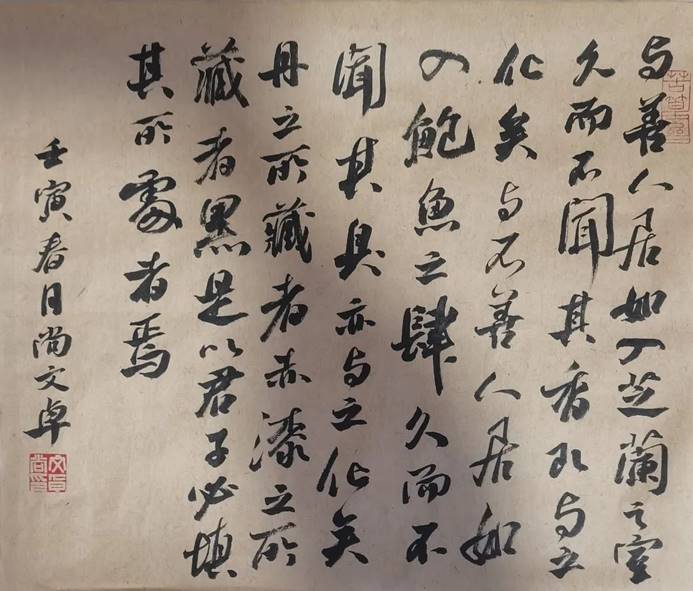 与善人居如入芝蘭之室
久而不聞其香即与之
化矣与不善人居如
入鮑魚之肆久而不
聞其臭亦与之化矣
丹之所藏者赤漆之所
藏者黑是以君子必慎
其所處者焉
壬寅春日尚文卓